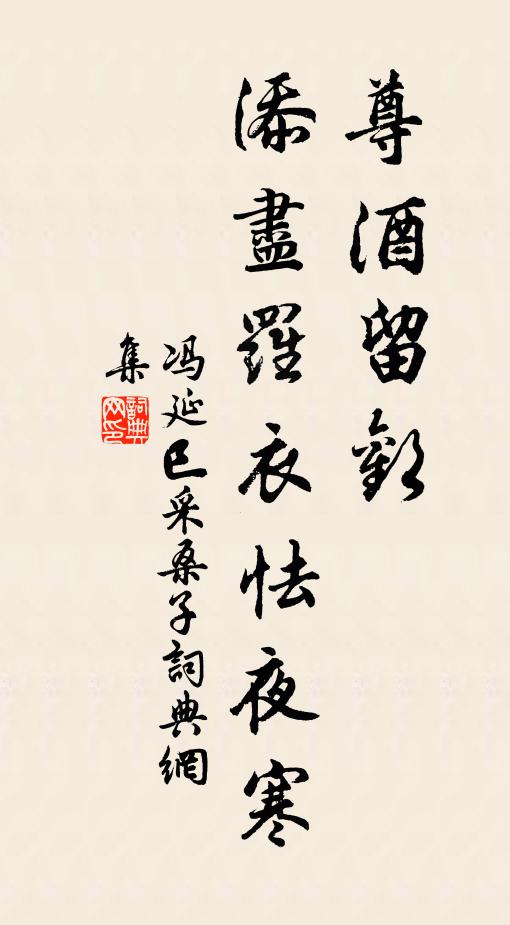 尊酒留歡
添盡羅衣怯夜寒
冯延巳采桑子詞典網
集
詞典
网印